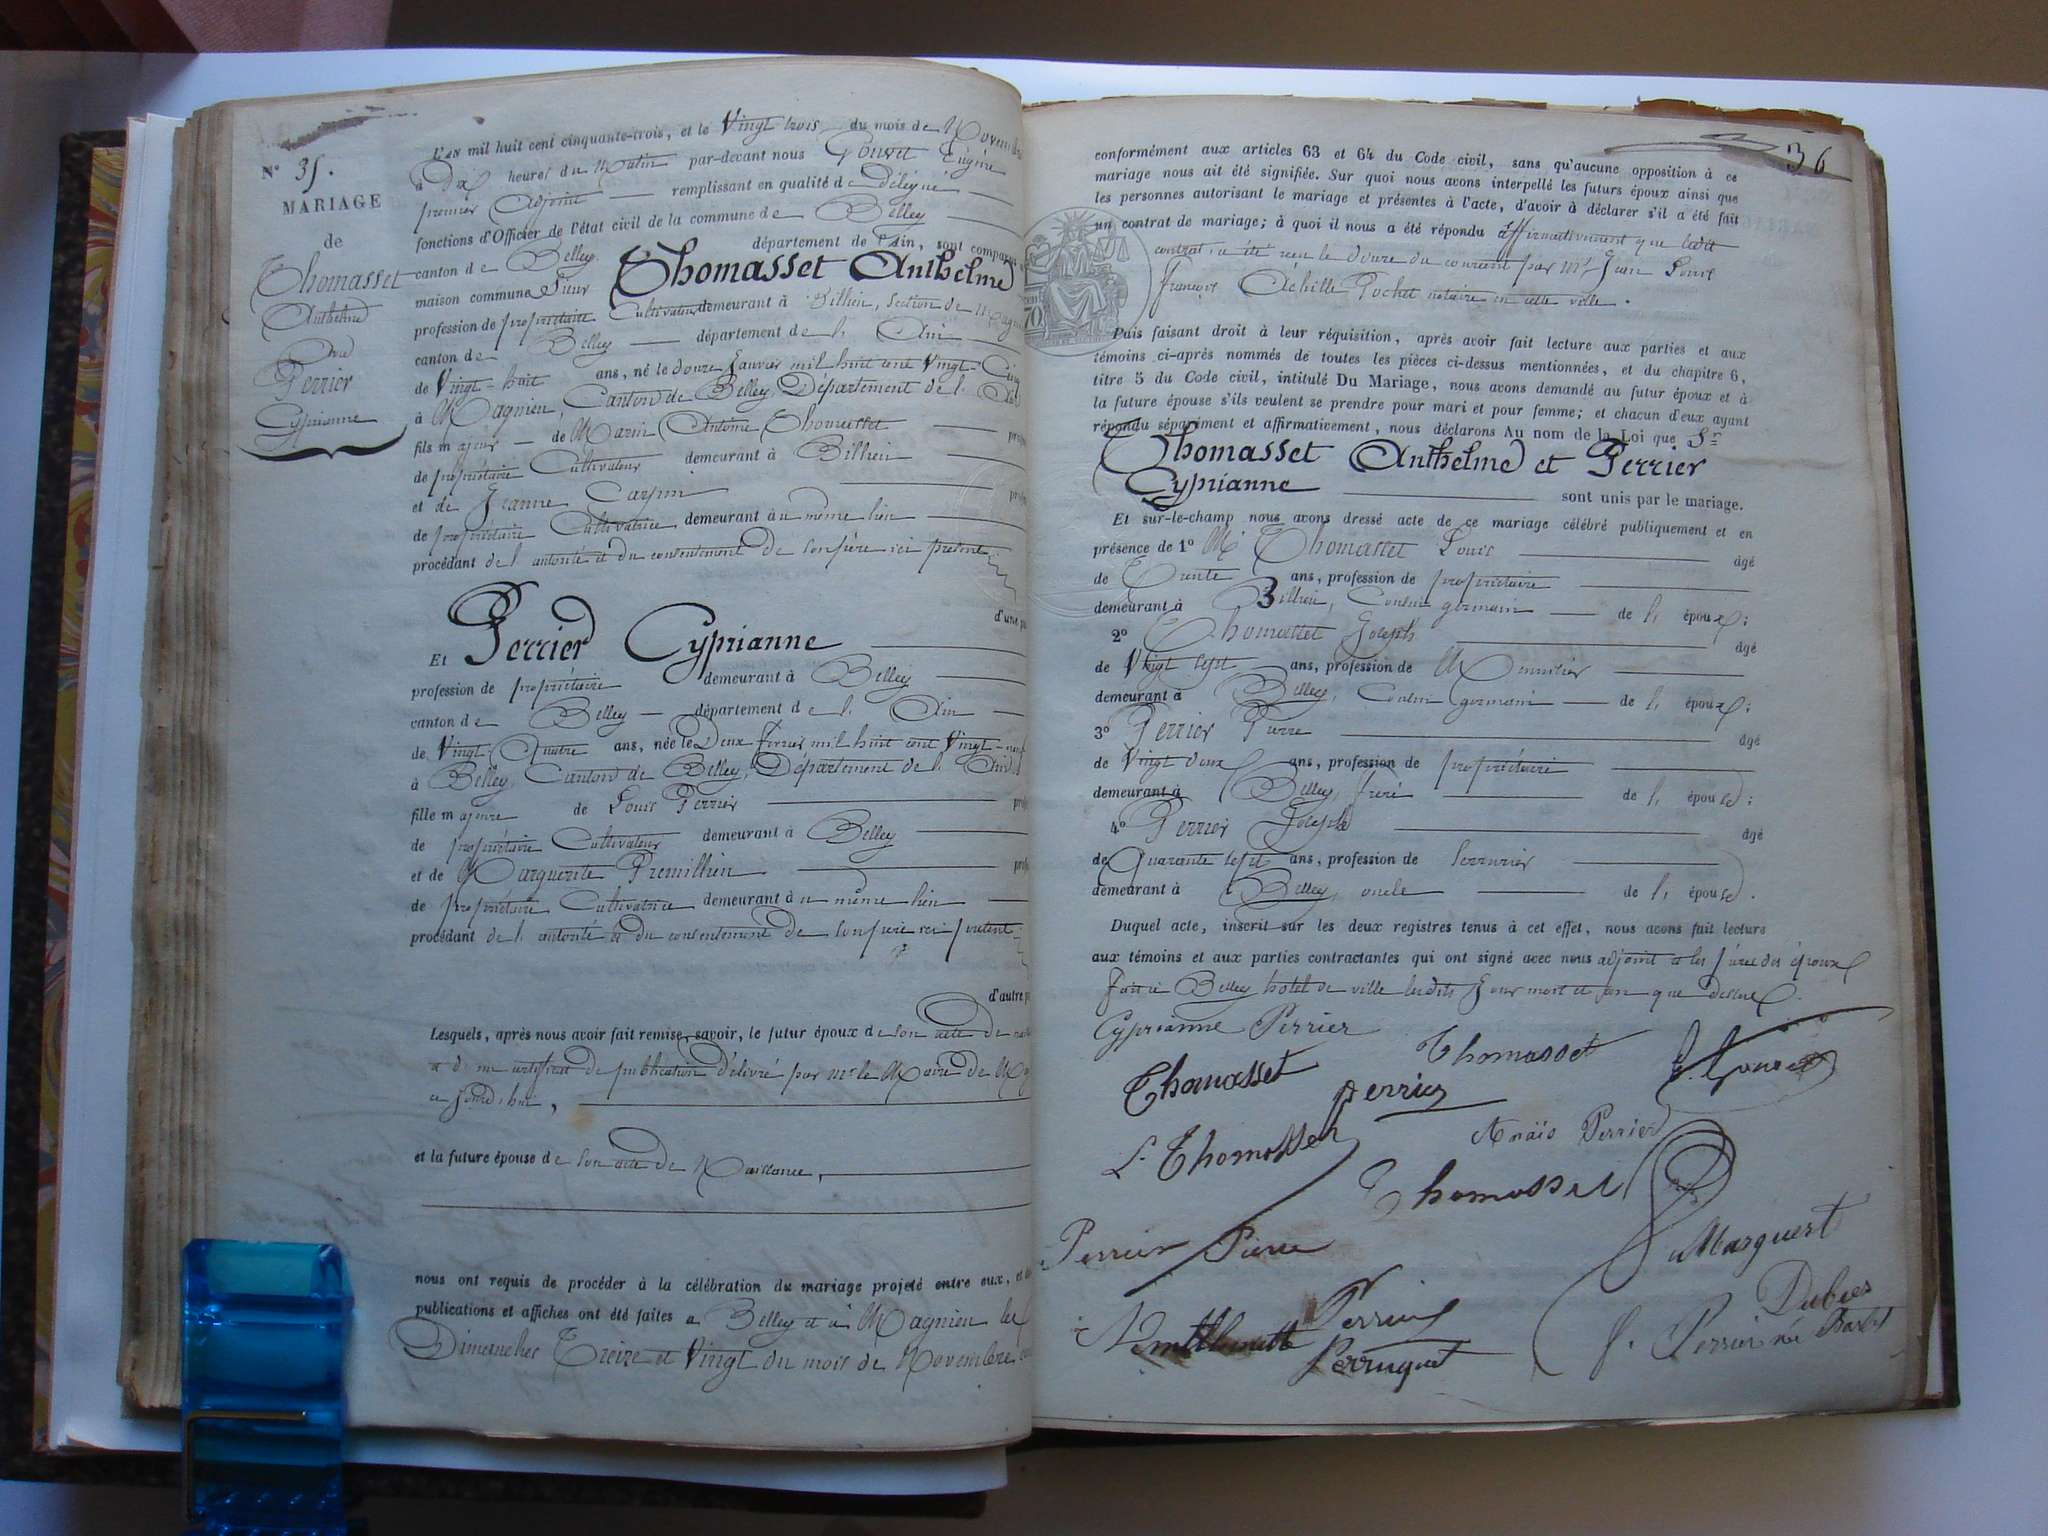 N° 35.
MARIAGE
de
Thomasset
Anthelme
Perrier
Cyprianne
L'AN mil huit cent cinquante-trois, et le Vingt trois du mois de Novembre
à Dix heures du Matin par-devant nous Eugène
premier Adjoint remplissant en qualité de délégué
fonctions d'Officier de l'état civil de la commune de Belley
canton de Belley département de l'Ain, sont comparus
maison commune Sieur Thomasset Anthelme
profession de propriétaire Cultivateur demeurant à Billieu, Section de
canton de Belley département de l' Ain
de Vingt-huit ans, né le douze Janvier mil huit cent Vingt-Cinq
à Magnieu, Canton de Belley, Département de l' Ain
fils majeur de Marin Antoine Thomasset
de propriétaire Cultivateur demeurant à Billieu
et de Jeanne
de propriétaire Cultivatrice demeurant au même lieu
procédant de l' autorité et du consentement de son père ici présent
d'une
Et Perrier Cyprianne
profession de propriétaire demeurant à Belley
canton de Belley département de l' Ain
de Vingt-Quatre ans, née le Deux février mil huit cent Vingt-neuf
à Belley, Canton de Belley, Département de l' Ain
fille majeure de Louis Perrier
de propriétaire Cultivateur demeurant à Belley
et de Marguerite Premillieu
de propriétaire Cultivatrice demeurant au même lieu
procédant de l' autorité et du consentement de son père ici présent
d'autre
Lesquels, après nous avoir fait remise, savoir, le futur époux de son acte de
et d'un certificat de publication délivré par Mr le Maire de
et la future épouse de son acte de Naissance,
nous ont requis de procéder à la célébration du mariage projeté entre eux,
publications et affiches ont été faites à Belley et à Magnieu les
Dimanches Treize et Vingt du mois de Novembre
36
conformément aux articles 63 et 64 du Code civil, sans qu'aucune opposition à ce
mariage nous ait été signifiée. Sur quoi nous avons interpellé les futurs époux ainsi que
les personnes autorisant le mariage et présentes à l'acte, d'avoir à déclarer s'il a été fait
un contrat de mariage; à quoi il nous a été répondu affirmativement que ledit
contrat a été reçu le douze du courant par Me Jean Louis
françois Achille Pochet notaire en cette ville.
Puis faisant droit à leur réquisition, après avoir fait lecture aux parties et aux
témoins ci-après nommés de toutes les pièces ci-dessus mentionnées, et du chapitre 6,
titre 5 du Code civil, intitulé Du Mariage, nous avons demandé au futur époux et à
la future épouse s'ils veulent se prendre pour mari et pour femme; et chacun d'eux ayant
répondu séparément et affirmativement, nous déclarons Au nom de la Loi que Sr
Thomasset Anthelme et Perrier
Cyprianne sont unis par le mariage.
Et sur-le-champ nous avons dressé acte de ce mariage célébré publiquement et en
présence de 1° Mr Thomasset Louis âgé
de Trente ans, profession de propriétaire
demeurant à Billieu, Cousin germain de l' époux;
2° Thomasset Joseph âgé
de Vingt sept ans, profession de Menuisier
demeurant à Belley, Cousin germain de l' époux;
3° Perrier Pierre âgé
de Vingt deux ans, profession de propriétaire
demeurant à Belley, frère de l' épouse;
4° Perrier Joseph âgé
de Quarante sept ans, profession de Serrurier
demeurant à Belley, oncle de l' épouse.
Duquel acte, inscrit sur les deux registres tenus à cet effet, nous avons fait lecture
aux témoins et aux parties contractantes qui ont signé avec nous adjoint et les pères des époux
fait à Belley hôtel de ville lesdits Jour mois et an que dessus
Cyprianne Perrier
Thomasset
Thomasset
Perrier
L. Thomasset
Anaïs Perrier
Thomasset
Perrier Pierre
Marguert
Perrier
Perruquet
f. Perrier née